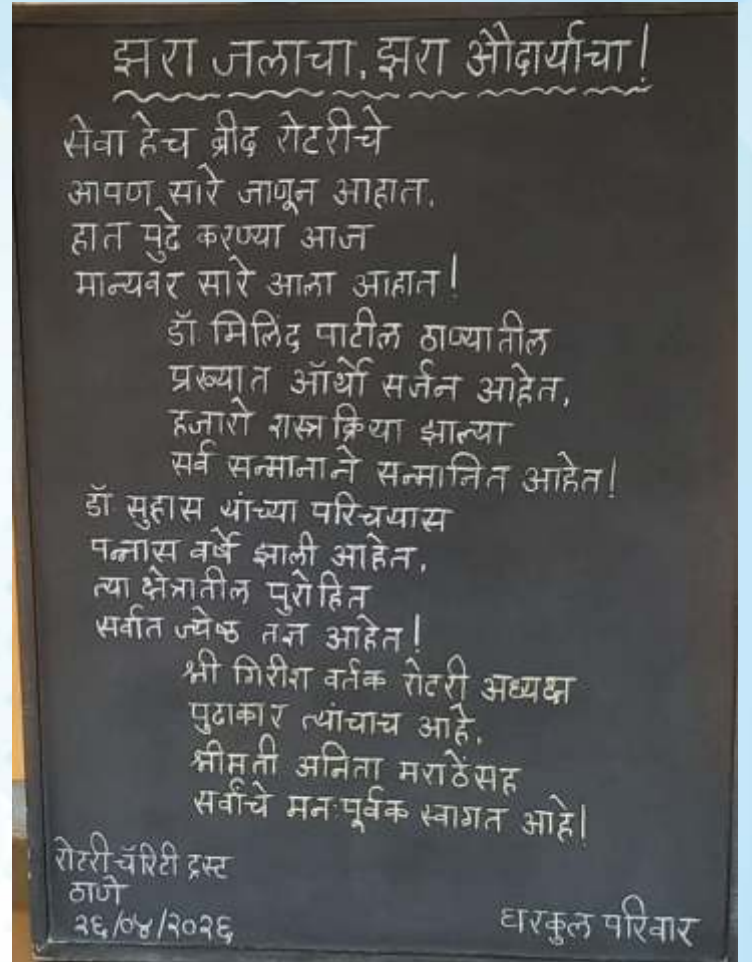 झरा जलाचा, झरा औदार्याचा!
सेवा हेच ब्रीद रोटरीचे
आपण सारे जाणून आहात.
हात पुढे करण्या आज
मान्यवर सारे आला आहात!
डॉ मिलिंद पाटील ठाण्यातील
प्रख्यात ऑर्थो सर्जन आहेत,
हजारो शस्त्रक्रिया झाल्या
सर्व सन्मानाने सन्मानित आहेत!
डॉ सुहास यांच्या परिचयास
पन्नास वर्षे झाली आहेत,
त्या क्षेत्रातील पुरोहित
सर्वात ज्येष्ठ तज्ञ आहेत!
श्री गिरीश वर्तक रोटरी अध्यक्ष
पुढाकार त्यांचाच आहे,
श्रीमती अनिता मराठेंसह
सर्वांचे मनःपूर्वक स्वागत आहे!
रोटरी चॅरिटी ट्रस्ट
ठाणे
२६/०४/२०२६
घरकुल परिवार